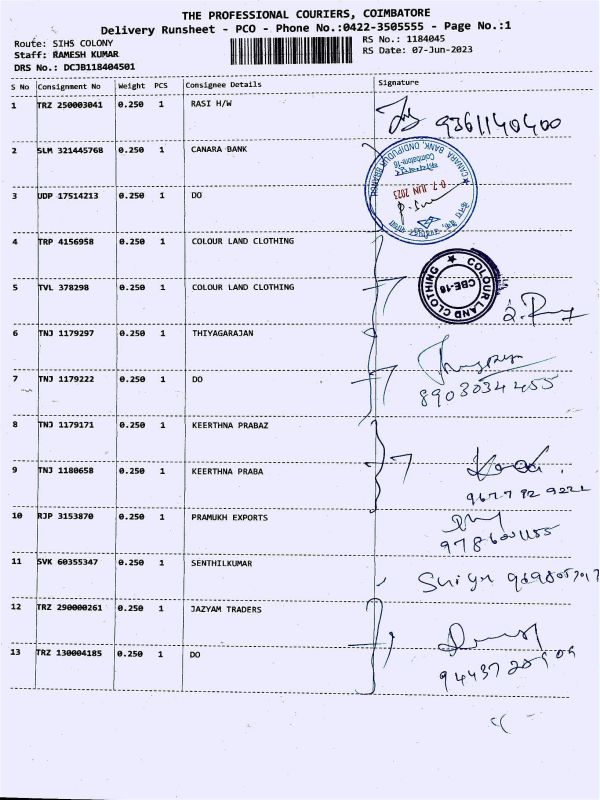 THE PROFESSIONAL COURIERS, COIMBATORE
Delivery Runsheet - PCO - Phone No.:0422-3505555 - Page No.:1
Route: SIHS COLONY
RS No.: 1184045
Staff: RAMESH KUMAR
RS Date: 07-Jun-2023
DRS No.: DCJB118404501
S No Consignment No Weight PCS Consignee Details Signature
1 TRZ 250003041 0.250 1 RASI H/W
9361140400
2 SLM 321445768 0.250 1 CANARA BANK
CANARA BANK, ONDIPUDUR BRANCH
Coimbatore-16
07 JUN 2023
3 UDP 17514213 0.250 1 DO
4 TRP 4156958 0.250 1 COLOUR LAND CLOTHING
5 TVL 378298 0.250 1 COLOUR LAND CLOTHING
COLOUR LAND CLOTHING
CBE-16
6 TNJ 1179297 0.250 1 THIYAGARAJAN
7 TNJ 1179222 0.250 1 DO
8903034455
8 TNJ 1179171 0.250 1 KEERTHNA PRABAZ
9 TNJ 1180658 0.250 1 KEERTHNA PRABA
10 RJP 3153870 0.250 1 PRAMUKH EXPORTS
11 SVK 60355347 0.250 1 SENTHILKUMAR
12 TRZ 290000261 0.250 1 JAZYAM TRADERS
13 TRZ 130004185 0.250 1 DO